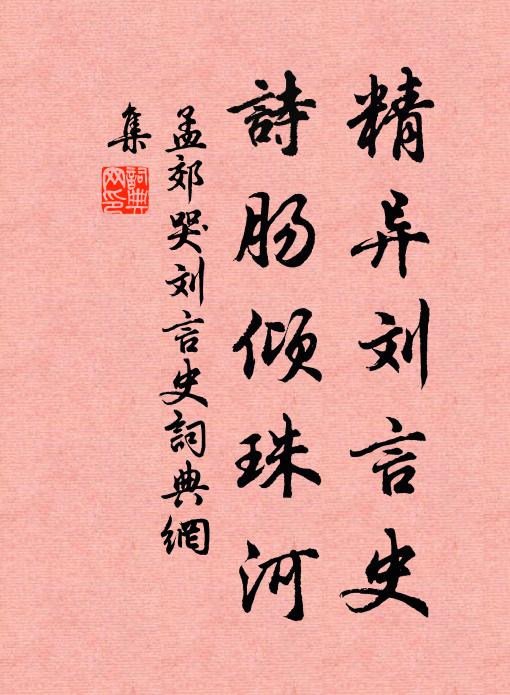 精异刘言史
詩肠倾珠河
孟郊哭刘言史詞典網
集
詞典
网印